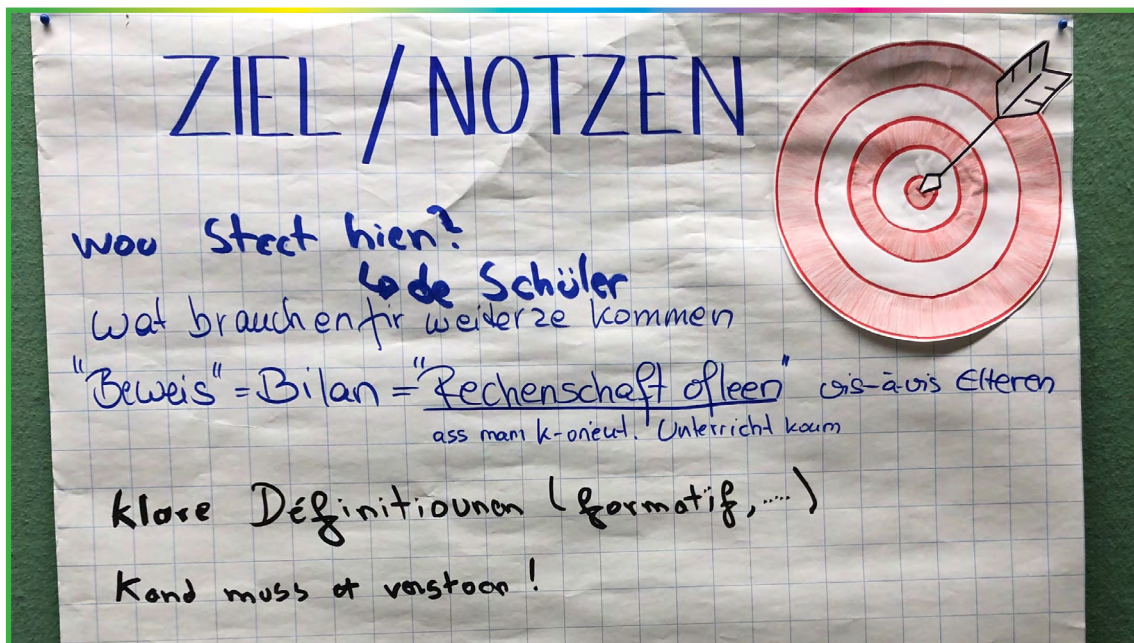 ZIEL / NOTZEN
wou steet hien?
↳ de Schüler
Wat brauch en fir weiderze kommen
"Beweis" = Bilan = "Rechenschaft ofleen" vis-à-vis Elteren
ass mam k-orieut. Unterricht koum
klore Définitiounen (formatif, .....)
Kand muss et verstoon!